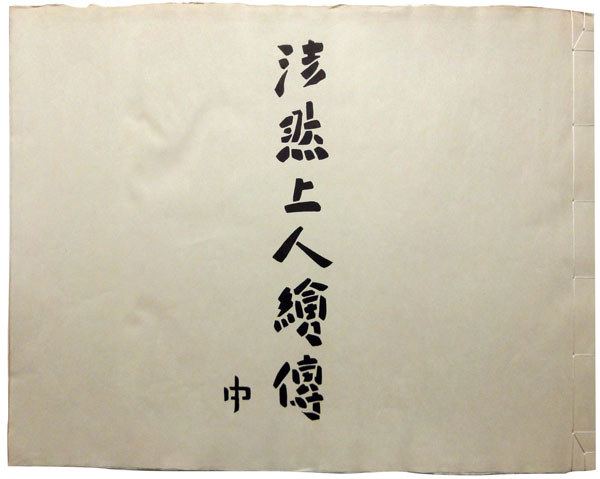 法然上人繪傳
中